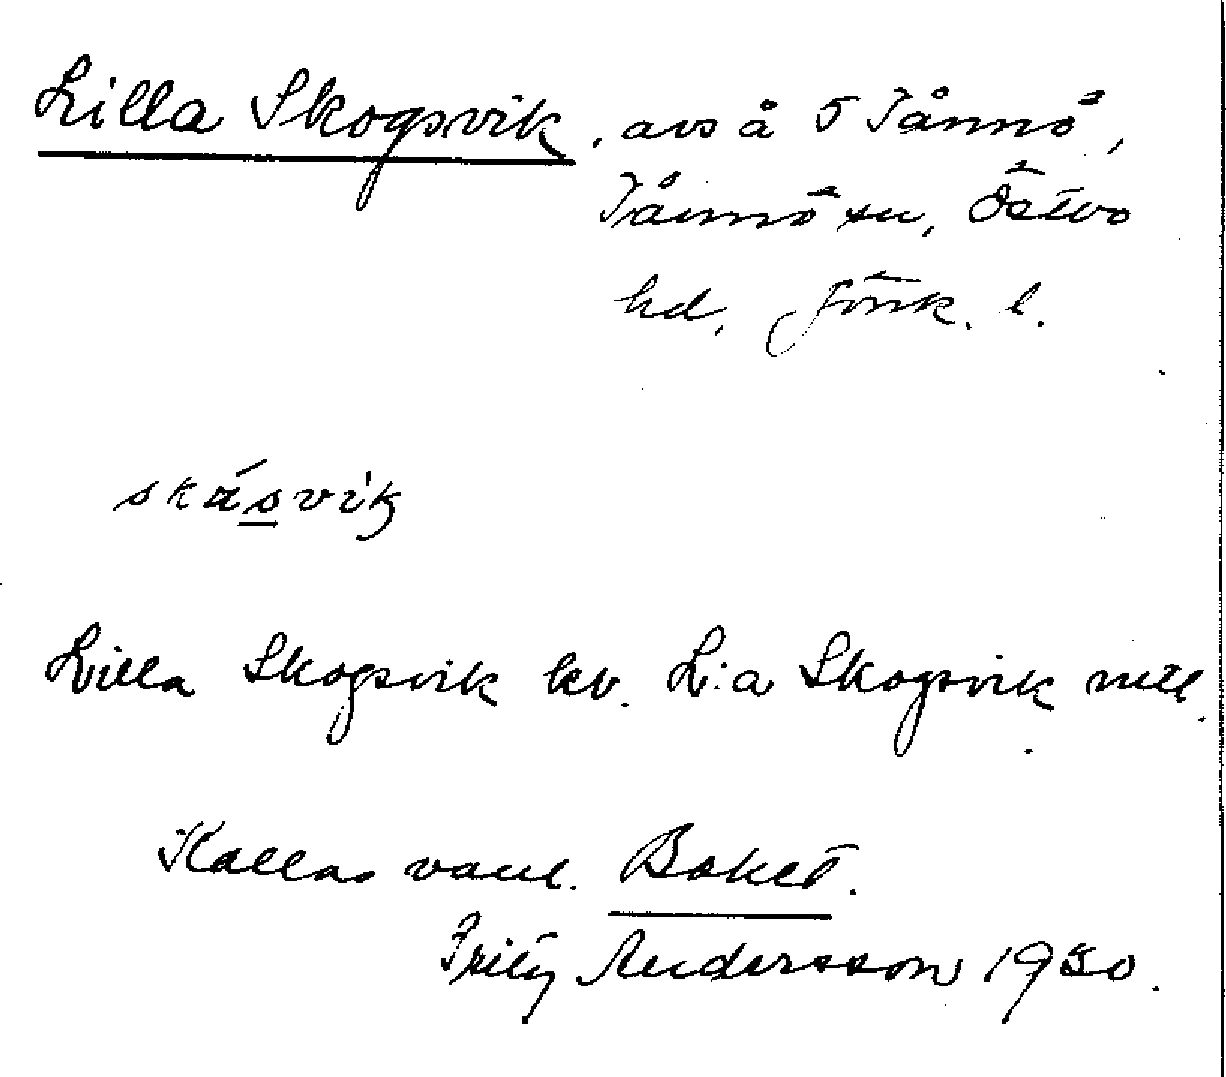 Lilla Skogsvik, avs å 5 Tånnö,
Tånnö sn, Östbo
hd, Jönk. l.
skásvik
Lilla Skogsvik kv. L:a Skogsvik mtl.
Kallas vanl. Boket.
Fritz Andersson 1930.